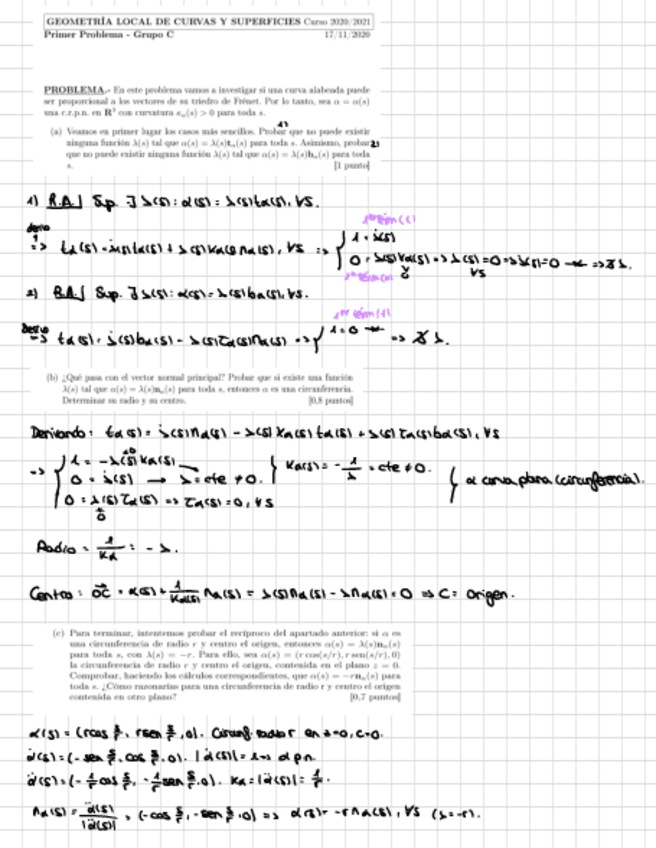 GEOMETRÍA LOCAL DE CURVAS Y SUPERFICIES Curso 2020/2021
Primer Problema - Grupo C 17/11/2020
PROBLEMA.- En este problema vamos a investigar si una curva alabeada puede
ser proporcional a los vectores de su triedro de Frénet. Por lo tanto, sea α = α(s)
una c.r.p.n. en R³ con curvatura κα(s) > 0 para toda s.
(a) Veamos en primer lugar los casos más sencillos. Probar que no puede existir
ninguna función λ(s) tal que α(s) = λ(s)tα(s) para toda s. Asimismo, probar
que no puede existir ninguna función λ(s) tal que α(s) = λ(s)bα(s) para toda
s. [1 punto]
1) R.A.| Sup. ∃ λ(s) : α(s) = λ(s)tα(s), ∀s.
deriv
=> tα(s) = λ̇(s)tα(s) + λ(s)κα(s)nα(s), ∀s => { 1 = λ̇(s)
0 = λ(s)κα(s) => λ(s) = 0 => λ̇(s) = 0 => ∄ λ.
∀s
2) R.A.| Sup. ∃ λ(s) : α(s) = λ(s)bα(s), ∀s.
deriv
=> tα(s) = λ̇(s)bα(s) - λ(s)τα(s)nα(s) => { 1 = 0 => ∄ λ.
(b) ¿Qué pasa con el vector normal principal? Probar que si existe una función
λ(s) tal que α(s) = λ(s)nα(s) para toda s, entonces α es una circunferencia.
Determinar su radio y su centro. [0,8 puntos]
Derivando: tα(s) = λ̇(s)nα(s) - λ(s)κα(s)tα(s) + λ(s)τα(s)bα(s), ∀s
=> { 1 = -λ(s)κα(s)
0 = λ̇(s) → λ = cte ≠ 0. } κα(s) = -1/λ = cte ≠ 0. { α curva plana (circunferencia).
0 = λ(s)τα(s) => τα(s) = 0, ∀s
Radio = 1/κα = -λ.
Centro: OC = α(s) + 1/κα(s) nα(s) = λ(s)nα(s) - λnα(s) = 0 => C = origen.
(c) Para terminar, intentemos probar el recíproco del apartado anterior: si α es
una circunferencia de radio r y centro el origen, entonces α(s) = λ(s)nα(s)
para toda s, con λ(s) = -r. Para ello, sea α(s) = (r cos(s/r), r sen(s/r), 0)
la circunferencia de radio r y centro el origen, contenida en el plano z = 0.
Comprobar, haciendo los cálculos correspondientes, que α(s) = -rnα(s) para
toda s. ¿Cómo razonarías para una circunferencia de radio r y centro el origen
contenida en otro plano? [0,7 puntos]
α(s) = (r cos s/r, r sen s/r, 0). Circunf. radio r en z=0, C=0.
α̇(s) = (-sen s/r, cos s/r, 0). |α̇(s)| = 1 => α p.n.
α̈(s) = (-1/r cos s/r, -1/r sen s/r, 0). κα = |α̈(s)| = 1/r.
nα(s) = α̈(s)/|α̈(s)| = (-cos s/r, -sen s/r, 0) => α(s) = -r nα(s), ∀s (λ=-r).